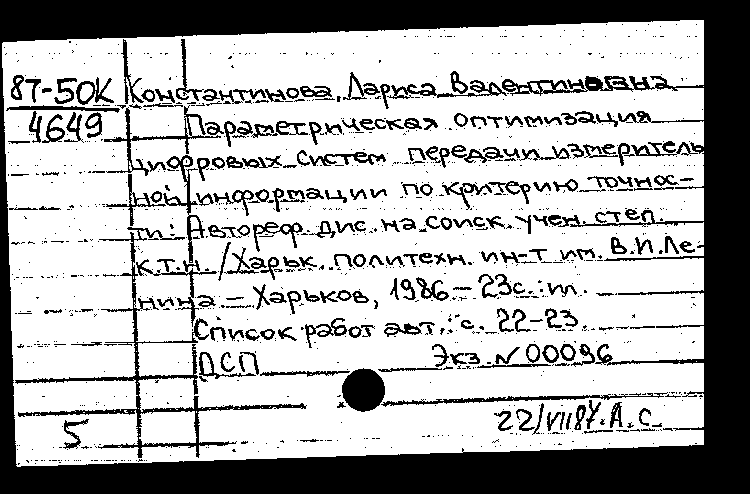 87-50К Константинова, Лариса Валентиновна
4649 Параметрическая оптимизация
цифровых систем передачи измеритель
ной информации по критерию точнос-
ти: Автореф. дис. на соиск. учен. степ.
к.т.н. / Харьк. политехн. ин-т им. В.И.Ле-
нина – Харьков, 1986 – 23с.: ил.
Список работ авт.: с. 22-23.
ДСП Экз. N 00096
5 22/VII87. А. С.